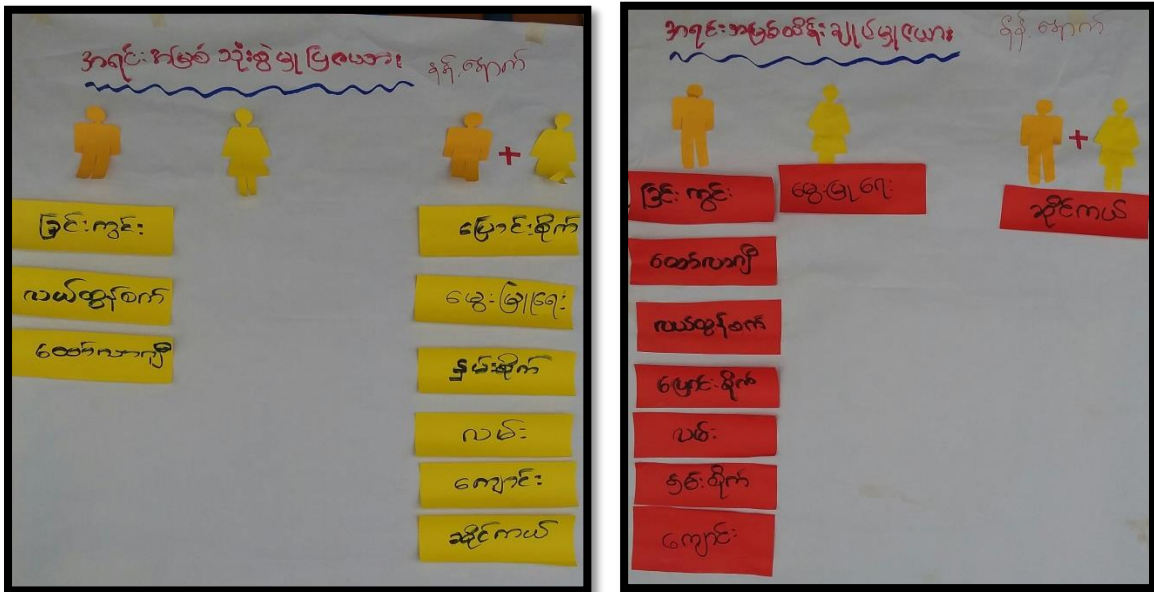 အရင်းအမြစ် သုံးစွဲမှုပြဇယား နန့်နောက်
+
ခြင်းကွင်း
လယ်ထွန်စက်
ထော်လာဂျီ
ပြောင်းစိုက်
မွေးမြူရေး
နှမ်းစိုက်
လမ်း
ကျောင်း
ဆိုင်ကယ်
အရင်းအမြစ်ထိန်းချုပ်မှုဇယား နန့်နောက်
+
ခြင်းကွင်း
ထော်လာဂျီ
လယ်ထွန်စက်
ပြောင်းစိုက်
လမ်း
နှမ်းစိုက်
ကျောင်း
မွေးမြူရေး
ဆိုင်ကယ်